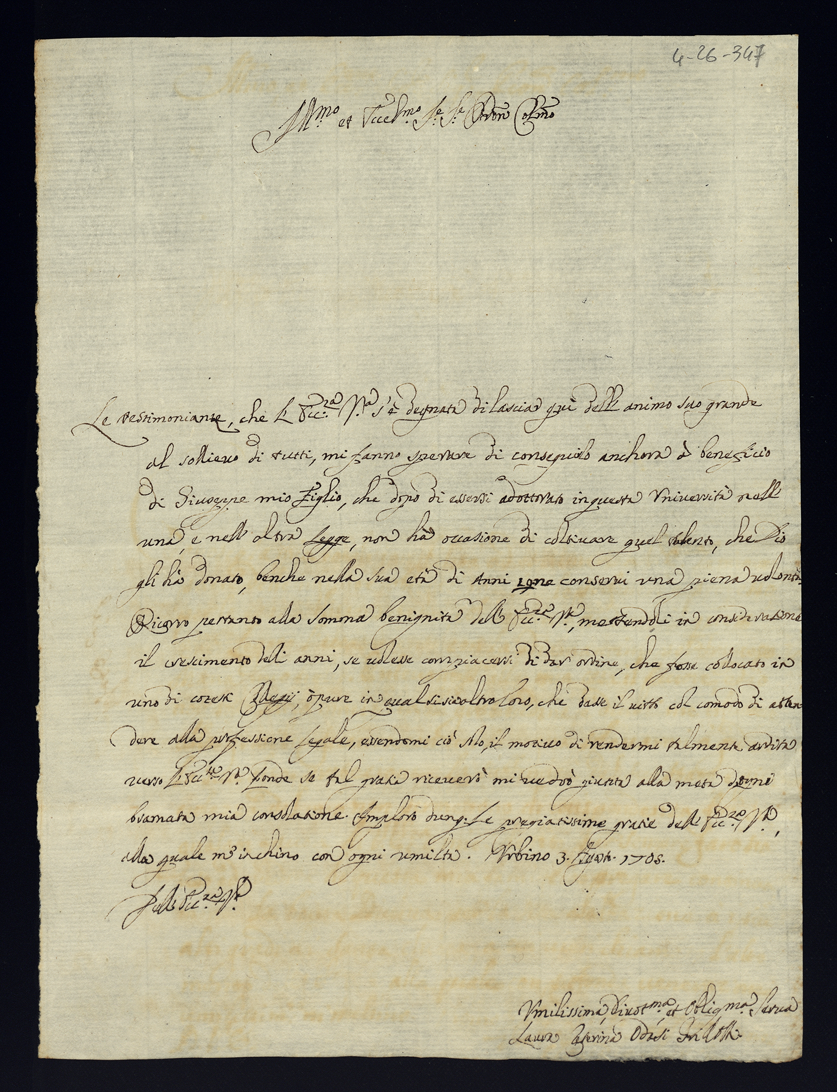 4-26-347
Ill.mo et Eccel.mo Sr. Sr. Pron Colmo
Le testimonianze, che l'Ecc.za V.ra s'è degnata di lasciar quì dell'animo suo grande
al sollievo di tutti, mi fanno sperare di conseguirlo anchora à beneficio
di Giuseppe mio Figlio, che dopò di essersi adottorato in questa Università nell'
una, e nell'altra Legge, non hà occasione di coltivare quel talento, che Dio
gli hà donato, benche nella sua età di Anni conservi una piena volontà.
Ricorro pertanto alla somma benignità dell'Ecc.za V.ra, mettendoli in consideratione
il crescimento deli anni, se volesse compiacersi di dar ordine, che fosse collocato in
uno di cotesti Collegij, ò pure in qual si sia altro loco, che dasse il vitto col comodo di atten
dere alla professione Legale, essendomi ciò solo, il motivo di rendermi talmente ardita
verso l'Ecc.za V.ra, onde se tal gratia riceverò mi vedrò giunta alla meta d'ogni
bramata mia consolatione. Imploro dunq. le pregiatissime gratie dell'Ecc.za V.ra,
alla quale m'inchino con ogni umiltà. Urbino 3. Agosto 1705.
Dell'Ecc.za V.ra
Umilissima, Divot.ma, et Obligma. Serva
Laura Odasi